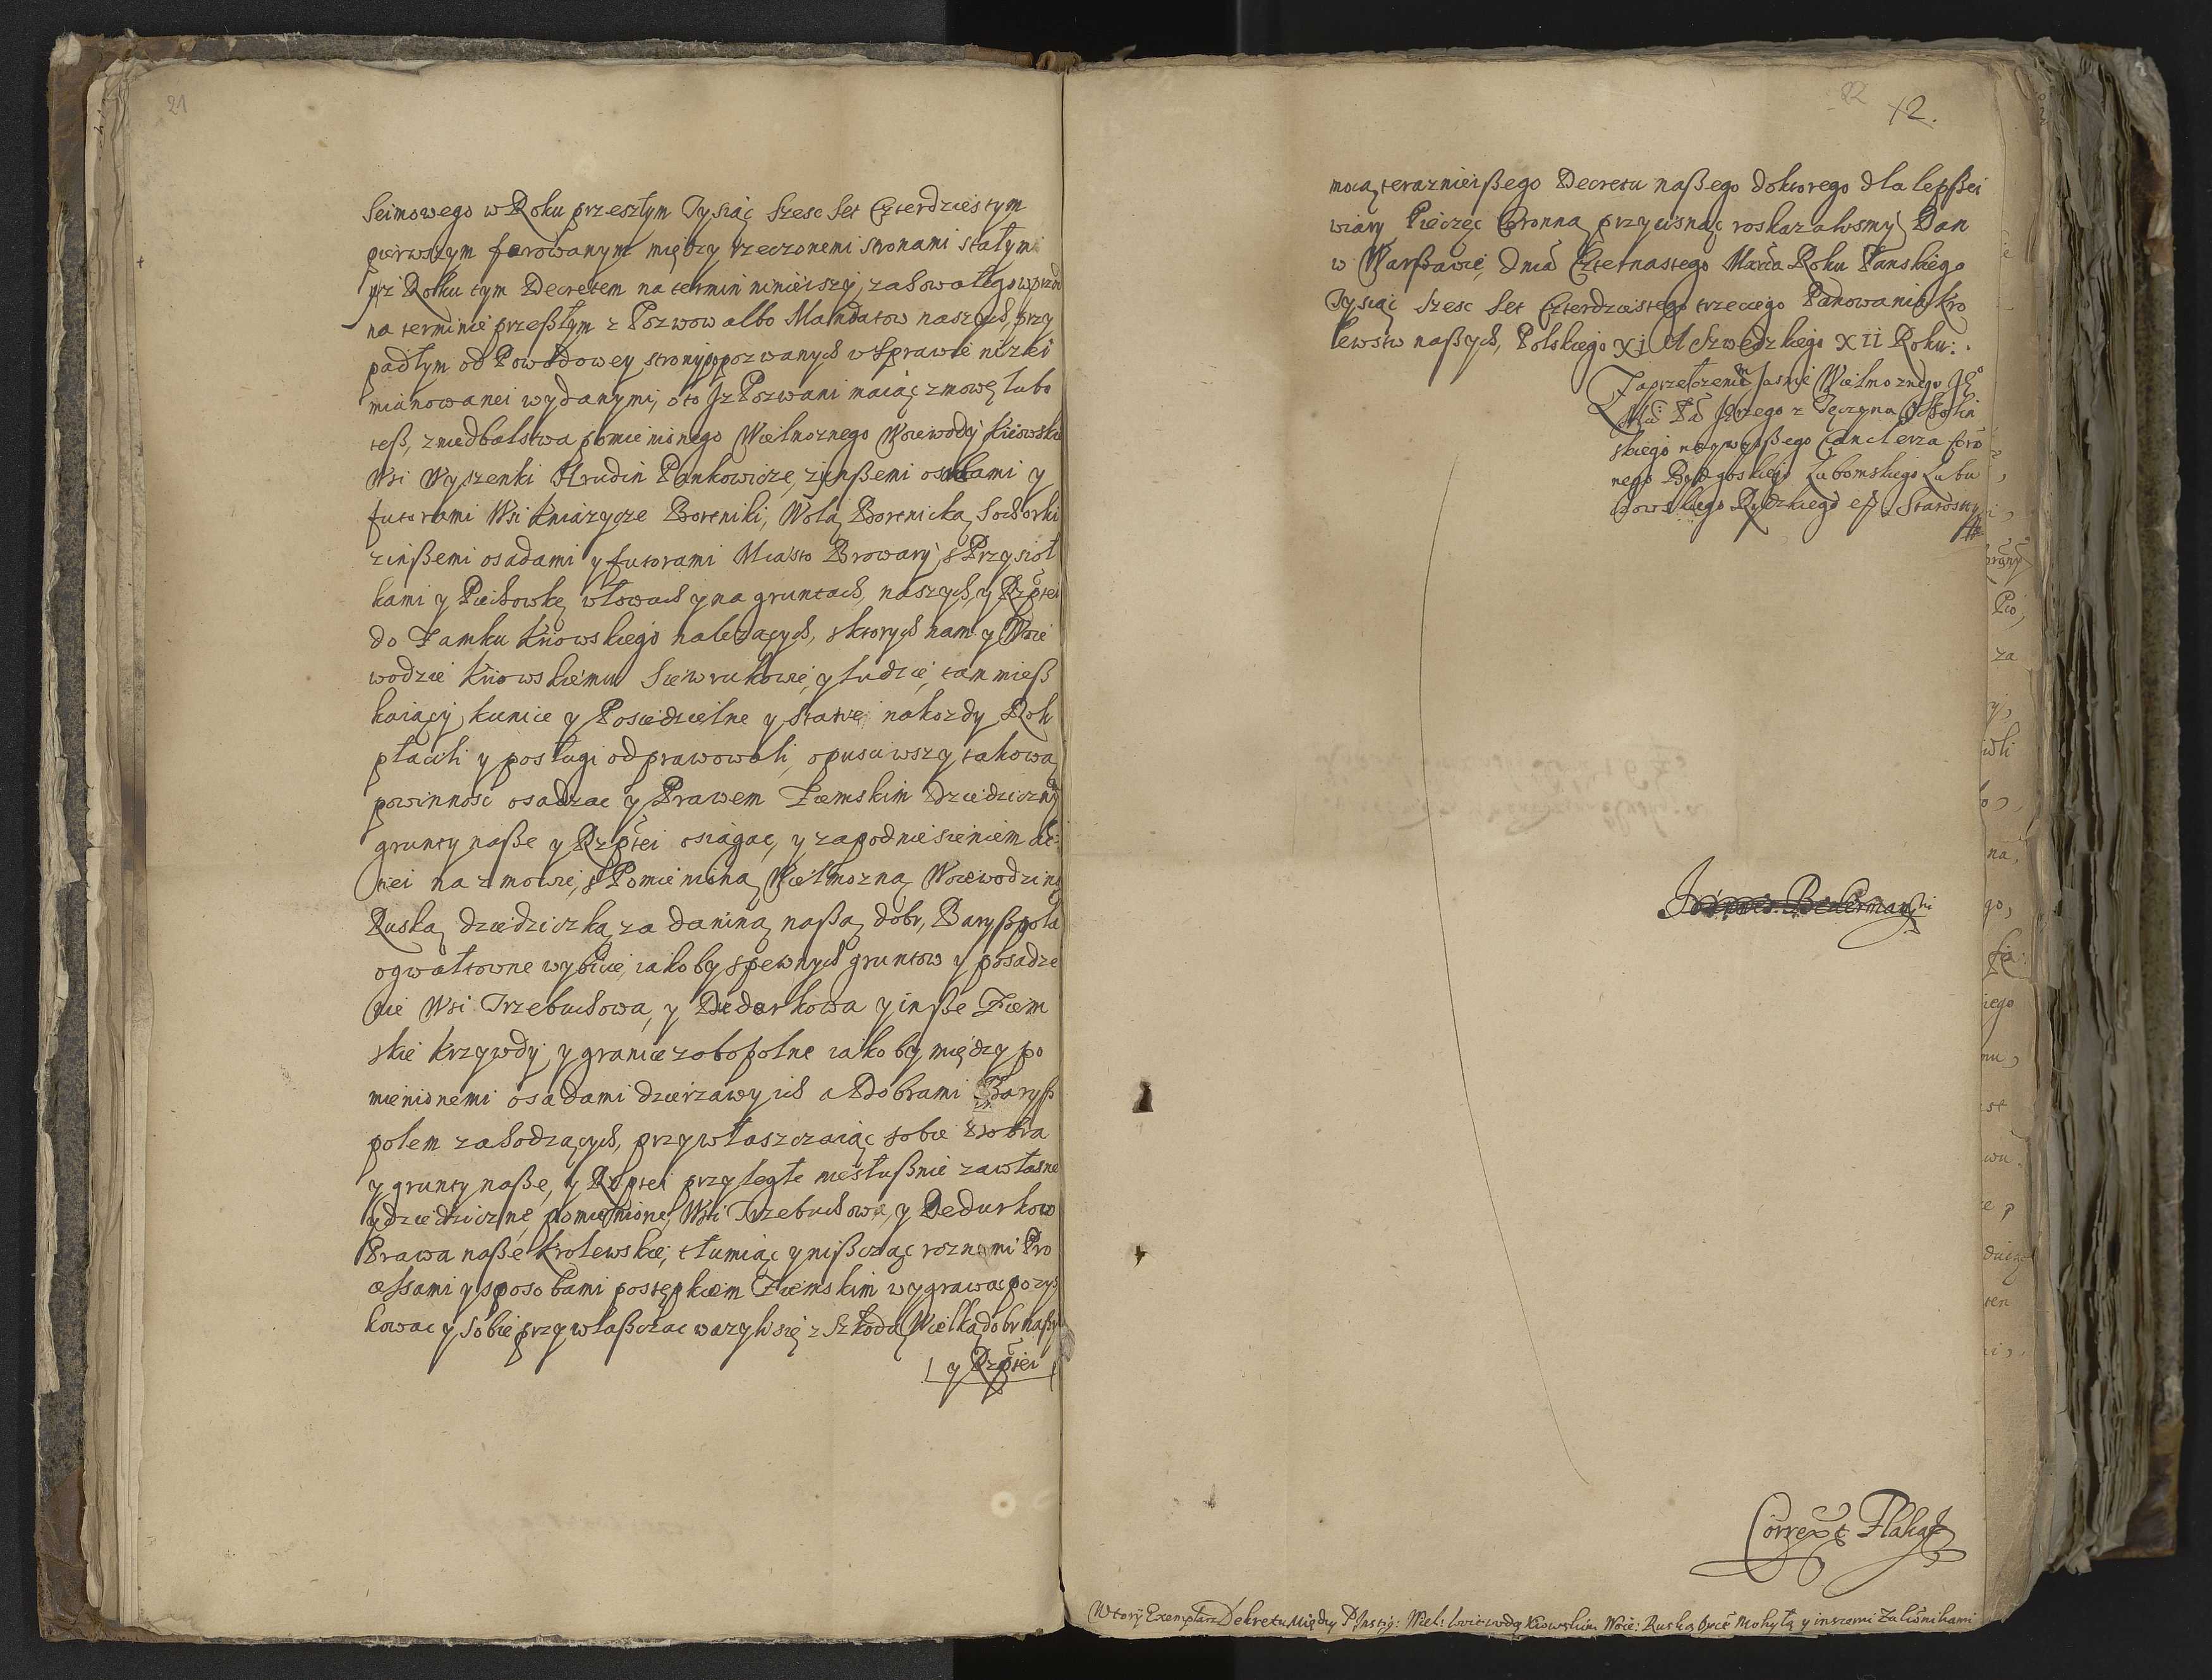 21
Seimowego w Roku przeszłym Tysiąc Szesc Set Czterdziestym
pierwszym ferowanym między rzeczonemi stronami stałym
Roku tym Decretem na termin ninieiszy, zachowałego wprzod
na terminie przeßłym z Pozwow albo Mandatow naszych, przy
padłym od Powodowey strony popozwanych w Sprawie nizei
mianowanei wydanymi, oto Jz Pozwani maiąc zmowę lubo
teß, z niedbalstwa pomienionego Wielmoznego Woiewody Kiiowskie
Wsi Wyszenki Hrudin Pankowicze, z inßemi osadami y
futorami Wsi Kniazycze Bortniki, Wola Bortnicka, Sochorki
z inßemi osadami y futorami Miasto Browary, s Przysioł
kami y Puchowkę włowach y na gruntach naszych, y Rzptei
do Zamku Kiiowskiego nalezących, s ktorych nam y Woie
wodzie Kiiowskiemu Siewrukowie, y ludzie, tam mieß
kaiący, kunice y Posiedzielne y Stawe nakozdy Rok
płacili y posługi odprawowali, opusciwszy takową
powinnosc osadzac y Prawem Ziemskim dziedziczny
grunty naße y Rzptei osiągac, y za podniesieniem
nei na zmowie, s Pomienioną Wielmozną Woiewodziną
Ruską dziedziczką za daniną naßą dobr, Baryßpola
o gwałtowne wybicie, iakoby s pewnych gruntow y posadze
nie Wsi Trzebuchowa, y Dedurkowa y inße Ziem
skie krzywdy, y granice zobopolne iakoby między po
mienionemi osadami dzierzawy ich a Dobrami Baryß
polem zachodzących, przywłaszczaiąc sobie Dobra
y grunty naße, y Rzptei przyległe niesłußnie za własne
y dziedziczne, pomienione, Wsi Trzebuchowa, y Dedurkow
Prawa naße Krolewskie, tłumiąc y nißcząc roznemi Pro
cessami y sposobami postępkiem Ziemskim wygrawac pozys
kowac y sobie przywłaßczac wazyli się z Szkodą Wielką dobr naßy
y Rzptei
22
12.
mocą teraznieißego Decretu naßego do ktorego dla lepßei
wiary Pieczęc Coronną przycisnąc roskazalismy Dan
w Warßawie, Dnia Czternastego Marca Roku Panskiego
Tysiąc Szesc Set Czterdziestego trzeciego Panowania Kro
lewstw naßych, Polskiego XI A Szwedzkiego XII Roku:.
Za przełozeniem Jasnie Wielmoznego Jego
Mci Pa Jerzego z Tęczyna Ossolin
skiego naywyzßego Canclerza Coro
nego Bydgoskiego Lubomskiego Lubu
Starosty
Correxit
Wtory Exemplarz Dekretu Między P. Instig: Wiel: Woiewodą Kiowskim Woie: Ruską Oyce Mohyłą y inszemi Zakonikami